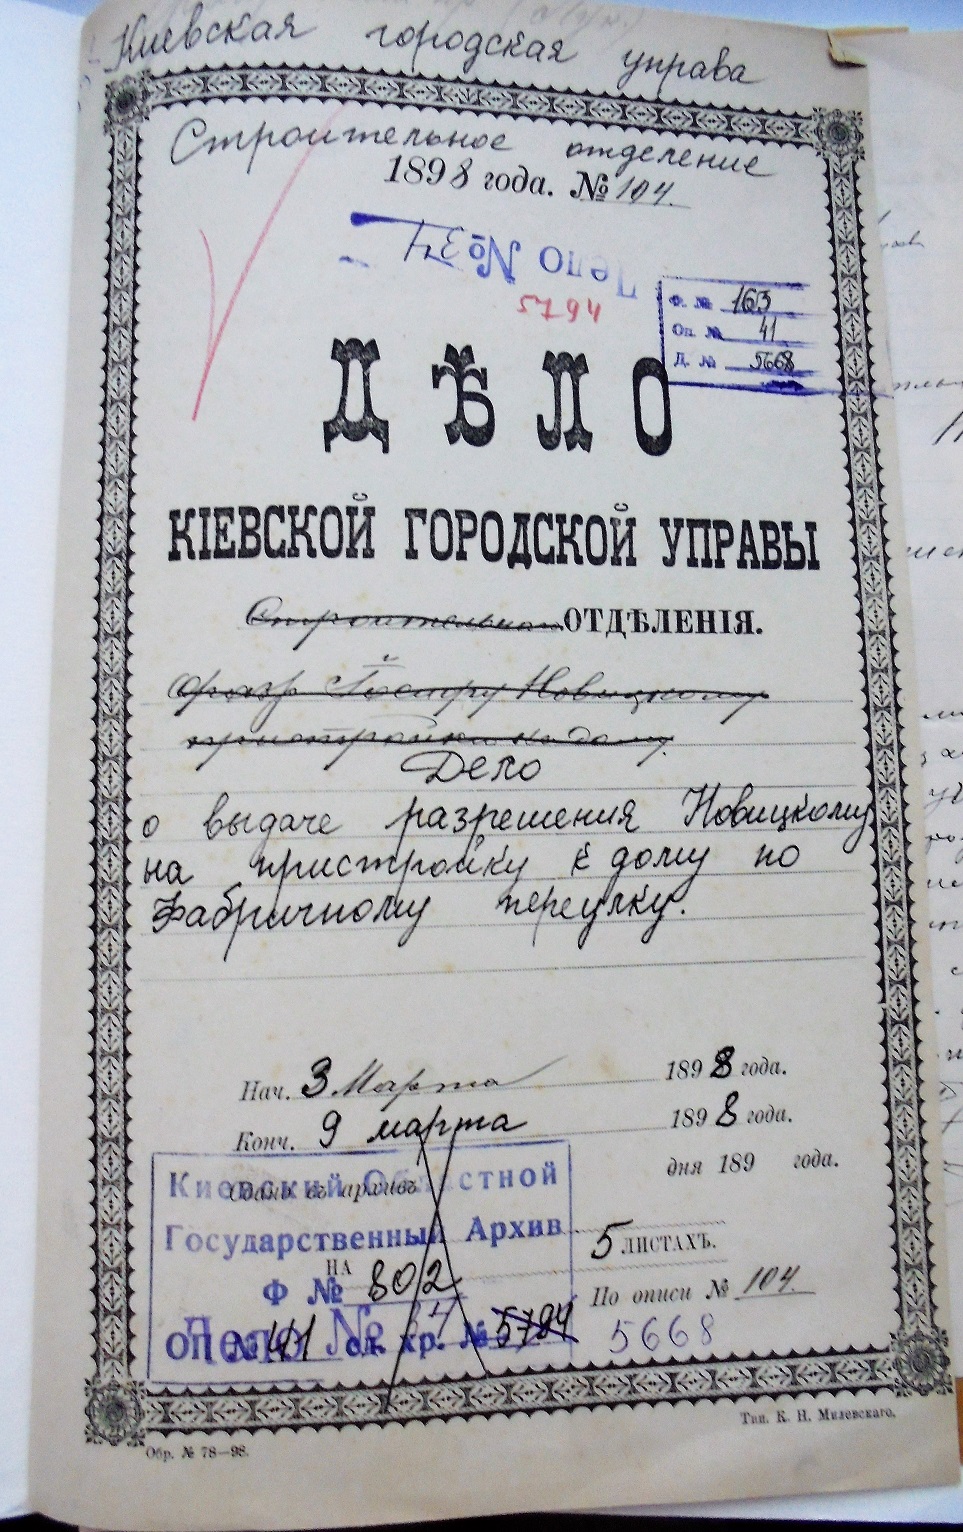 Киевская городская управа
Строительное отделение
1898 года. № 104.
Дело № 34
5794
Ф. № 163
Оп. № 41
Д. № 5668
ДѢЛО
КІЕВСКОЙ ГОРОДСКОЙ УПРАВЫ
Строительнаго ОТДѢЛЕНІЯ.
Новицкому
пристройки къ дому.
Дело
о выдаче разрешения Новицкому
на пристройку к дому по
Фабричному переулку.
Нач. 3 Марта 1898 года.
Конч. 9 марта 1898 года.
Сдано въ архивъ дня 189 года.
Киевский Областной
Государственный Архив
НА 5 ЛИСТАХЪ.
Ф № 802
По описи № 104.
ОП № 41 ед. хр. № 5794 5668
Дело № 34
Обр. № 78—98.
Тип. К. Н. Милевскаго.